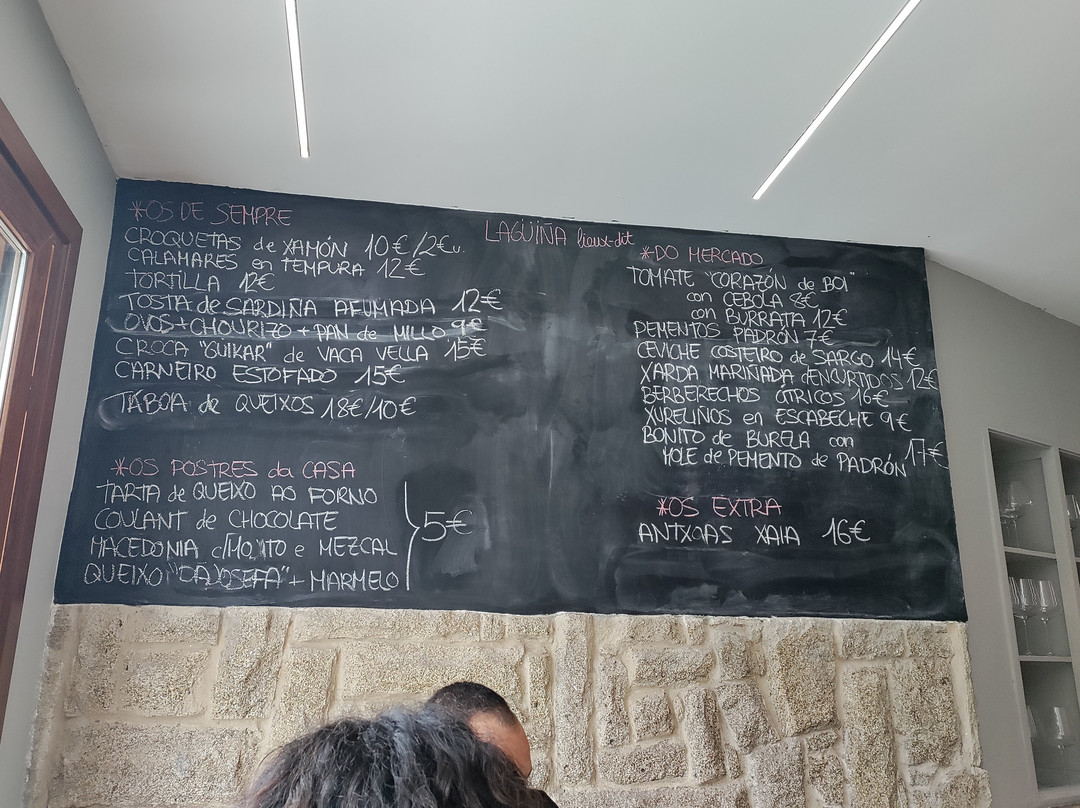 LAGÜIÑA lieux-dit
*OS DE SEMPRE
CROQUETAS de XAMÓN 10€/2€u.
CALAMARES en TEMPURA 12€
TORTILLA 12€
TOSTA de SARDIÑA AFUMADA 12€
OVOS+CHOURIZO+PAN de MILLO 9€
CROCA "GUIKAR" de VACA VELLA 15€
CARNEIRO ESTOFADO 15€
TABOA de QUEIXOS 18€/10€
*OS POSTRES da CASA
TARTA de QUEIXO AO FORNO
COULANT de CHOCOLATE
MACEDONIA c/MOXITO e MEZCAL
QUEIXO "DAJOSEFA"+ MARMELO
5€
*DO MERCADO
TOMATE "CORAZÓN de BOI"
con CEBOLA 8€
con BURRATA 12€
PEMENTOS PADRÓN 7€
CEVICHE COSTEIRO de SARGO 14€
XARDA MARIÑADA ENCURTIDOS 12€
BERBERECHOS CÍTRICOS 16€
XURELIÑOS en ESCABECHE 9€
BONITO de BURELA con
MOLE de PEMENTO de PADRÓN 17€
*OS EXTRA
ANTXOAS XAIA 16€